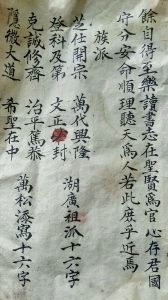 餘自得至樂讀書志在聖賢為官心存君國
守分安命順理聽天為人若此庶乎近焉
族派
芝仕開宗 萬代興隆
登科及第 文正封
湖廣祖派十六字
克誠修齊 治平篤恭
隱微大道 希聖在中
萬松添寫十六字